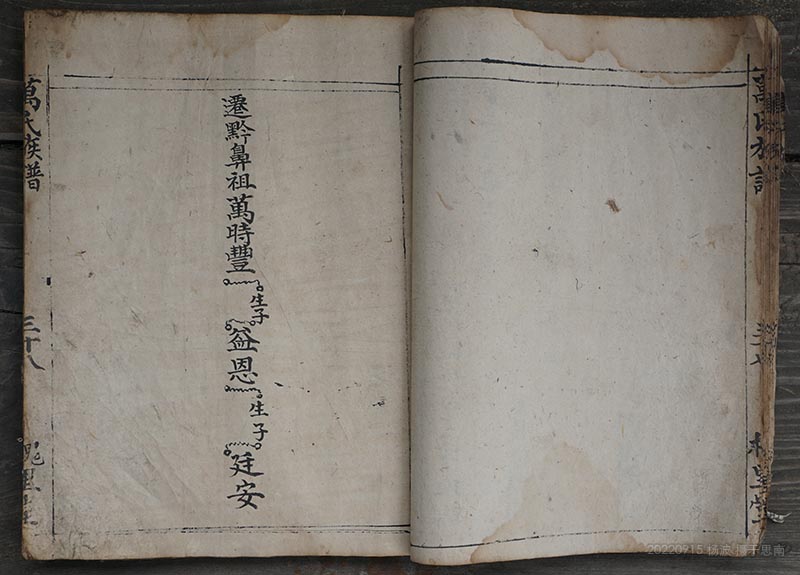 遷黔鼻祖萬時豐
生子
益恩
生子
廷安
萬氏族譜
三十八
萬氏族譜
20220915 杨波 摄于思南